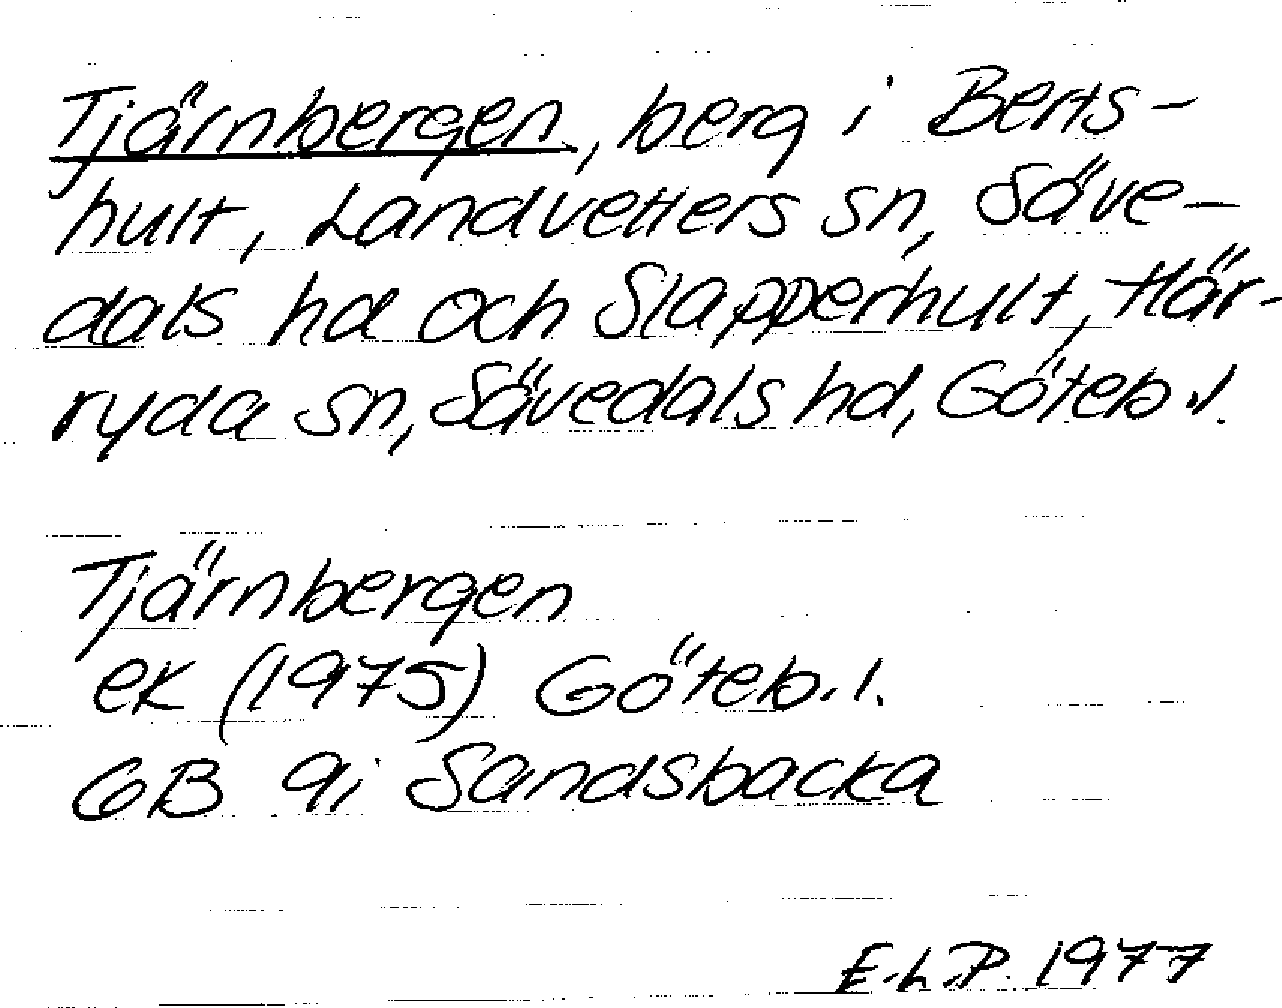 Tjärnbergen, berg i Berts-
hult, Landvetters sn, Säve-
dals hd och Slapperhult, Här-
ryda sn, Sävedals hd, Göteb.l.
Tjärnbergen
ek (1975) Göteb.l.
GB 9i Sandsbacka
E.L.P. 1977